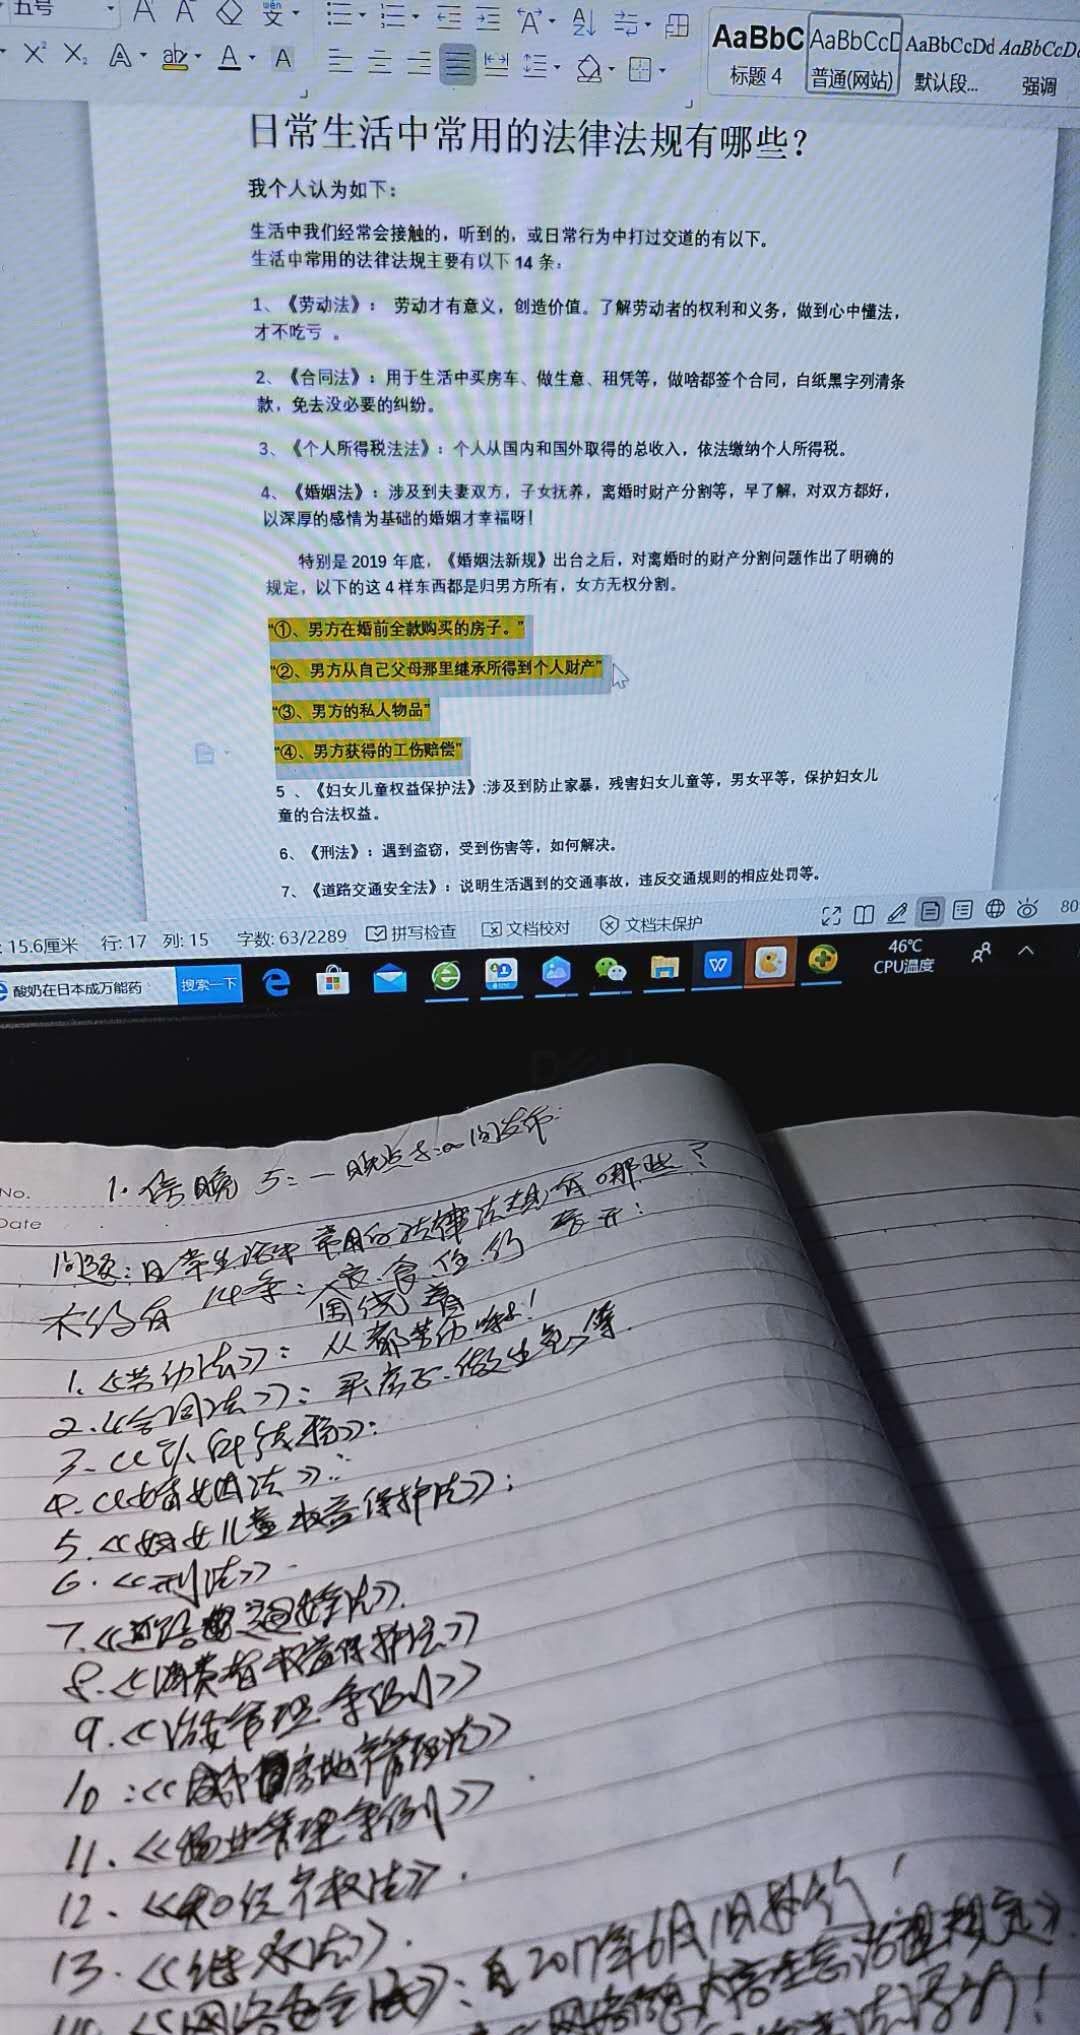 五号
AaBbC AaBbCcD AaBbCcDd AaBbCcDd
标题 4 普通(网站) 默认段... 强调
日常生活中常用的法律法规有哪些？
我个人认为如下：
生活中我们经常会接触的，听到的，或日常行为中打过交道的有以下。
生活中常用的法律法规主要有以下 14 条：
1、《劳动法》： 劳动才有意义，创造价值。了解劳动者的权利和义务，做到心中懂法，
才不吃亏 。
2、《合同法》：用于生活中买房车、做生意、租凭等，做啥都签个合同，白纸黑字列清条
款，免去没必要的纠纷。
3、《个人所得税法法》：个人从国内和国外取得的总收入，依法缴纳个人所得税。
4、《婚姻法》：涉及到夫妻双方，子女抚养，离婚时财产分割等，早了解，对双方都好，
以深厚的感情为基础的婚姻才幸福呀！
特别是 2019 年底，《婚姻法新规》出台之后，对离婚时的财产分割问题作出了明确的
规定，以下的这 4 样东西都是归男方所有，女方无权分割。
“①、男方在婚前全款购买的房子。”
“②、男方从自己父母那里继承所得到个人财产”
“③、男方的私人物品”
“④、男方获得的工伤赔偿”
5 、《妇女儿童权益保护法》:涉及到防止家暴，残害妇女儿童等，男女平等，保护妇女儿
童的合法权益。
6、《刑法》：遇到盗窃，受到伤害等，如何解决。
7、《道路交通安全法》：说明生活遇到的交通事故，违反交通规则的相应处罚等。
: 15.6厘米 行: 17 列: 15 字数: 63/2289 拼写检查 文档校对 文档未保护 80
酸奶在日本成万能药 搜索一下 46℃
CPU温度
DELL
No.
Date
1. 傍晚 5:
问题：日常生活中常用的法律法规有哪些？
大约有 14条：衣.食.住.行
围绕着
1.《劳动法》：
2.《合同法》：买房子.做生意等.
3.《个人所得税》：
4.《婚姻法》：
5.《妇女儿童权益保护法》：
6.《刑法》
7.《道路交通安全法》.
8.《消费者权益保护法》
9.《治安管理条例》
10.《城市房地产管理法》
11.《物业管理条例》
12.《知识产权法》.
13.《继承法》.
《网络安全法》：自2017年6月1日执行！